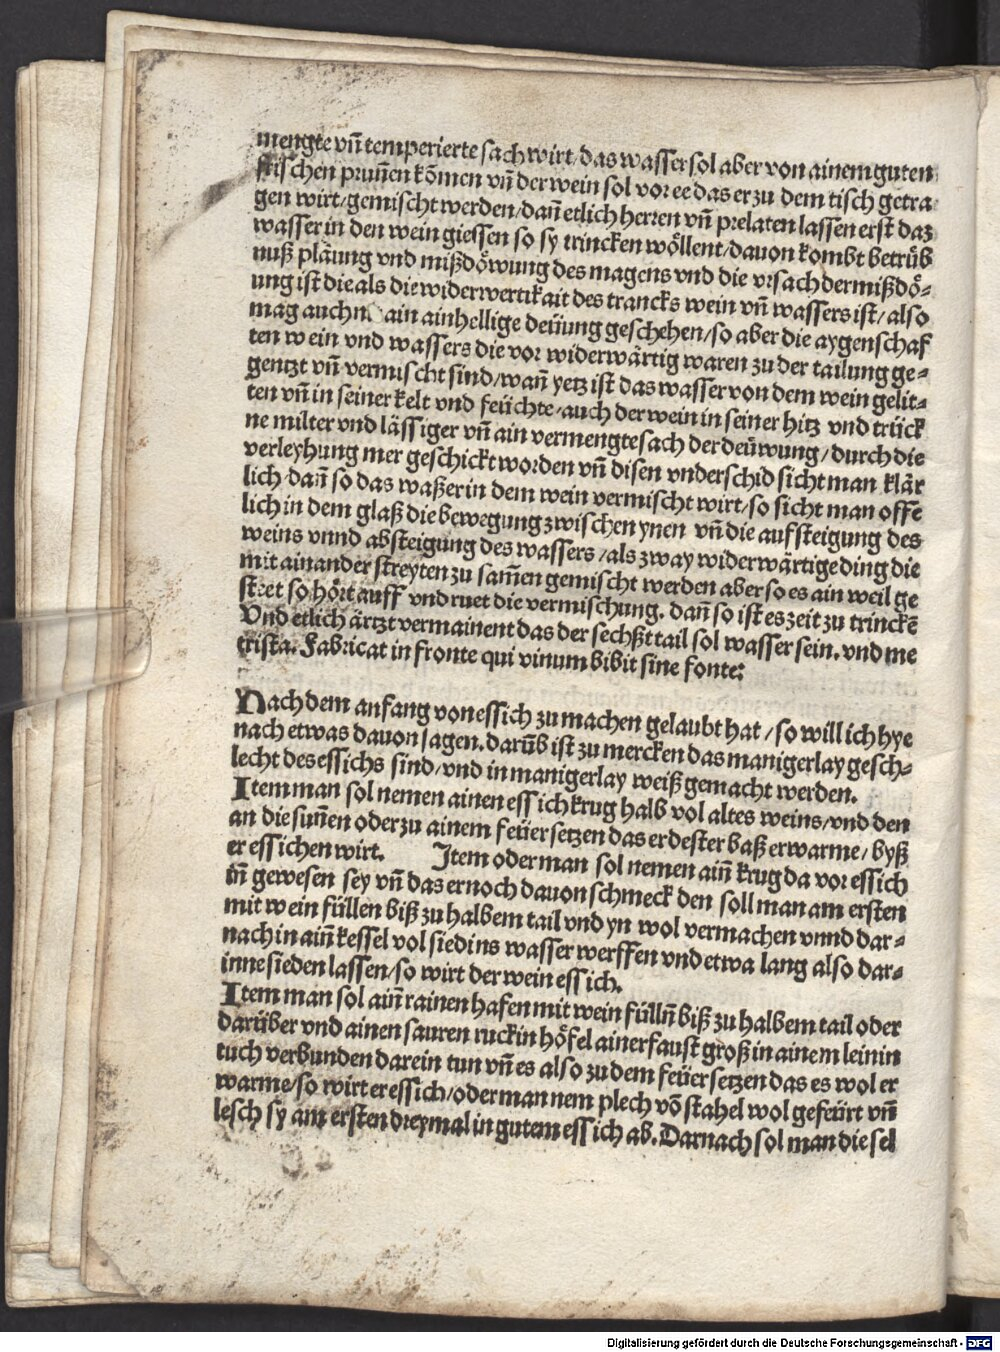 mengte vñ temperierte sach wirt/das wasser sol aber von ainem guten
frischen prunnen kömen vñ der wein sol vor ee das er zu dem tisch getra
gen wirt/gemischt werden/dañ etlich herren vñ prelaten lassen erst daz
wasser in den wein giessen so sy trincken wöllent/dauon kombt betrüb
nuß pläung vnd mißdöwung des magens vnd die vrsach der mißdö-
ung ist die als die widerwertikait des trancks wein vñ wassers ist/also
mag auch ain ainhellige deüung geschehen/so aber die aygenschaf
ten wein vnd wassers die vor widerwärtig waren zu der tailung ge-
gentzt vñ vermischt sind/wañ yetz ist das wasser von dem wein gelit-
ten vñ in seiner kelt vnd feüchte/auch der wein in seiner hitz vnd trück
ne milter vnd lässiger vñ ain vermengte sach der deüwung/durch die
verleyhung mer geschickt worden vñ disen vnderschid sicht man klär
lich/dañ so das waßer in dem wein vermischt wirt/so sicht man offe
lich in dem glaß die bewegung zwischen ynen vñ die aufsteigung des
weins vnnd absteigung des wassers/als zway widerwärtige ding die
mit ainander streyten zu samen gemischt werden aber so es ain weil ge
street so hört auff vnd ruet die vermischung. dañ so ist es zeit zu trinckē
Vnd etlich ärtzt vermainent das der sechßt tail sol wasser sein. vnd me
trista. Fabricat in fronte qui vinum bibit sine fonte:
Nach dem anfang von essich zu machen gelaubt hat/so will ich hye
nach etwas dauon sagen. darüb ist zu mercken das manigerlay gesch-
lecht des essichs sind/vnd in manigerlay weiß gemacht werden.
Item man sol nemen ainen essich krug halb vol altes weins/vnd den
an die sunnen oder zu ainem feüer setzen das er dester baß erwarme/byß
er essichen wirt. Item oder man sol nemen aiñ krug da vor essich
iñ gewesen sey vñ das er noch dauon schmeck den soll man am ersten
mit wein füllen biß zu halbem tail vnd yn wol vermachen vnnd dar-
nach in aiñ kessel vol siedins wasser werffen vnd etwa lang also dar-
inne sieden lassen/so wirt der wein essich.
Item man sol aiñ rainen hafen mit wein fülln biß zu halbem tail oder
darüber vnd ainen sauren ruckin höfel ainer faust groß in ainem leinin
tuch verbunden darein tun vñ es also zu dem feüer setzen das es wol er
warme/so wirt er essich/oder man nem plech vō stahel wol gefeürt vñ
lesch sy am ersten dreymal in gutem essich ab. Darnach sol man die sel
Digitalisierung gefördert durch die Deutsche Forschungsgemeinschaft - DFG